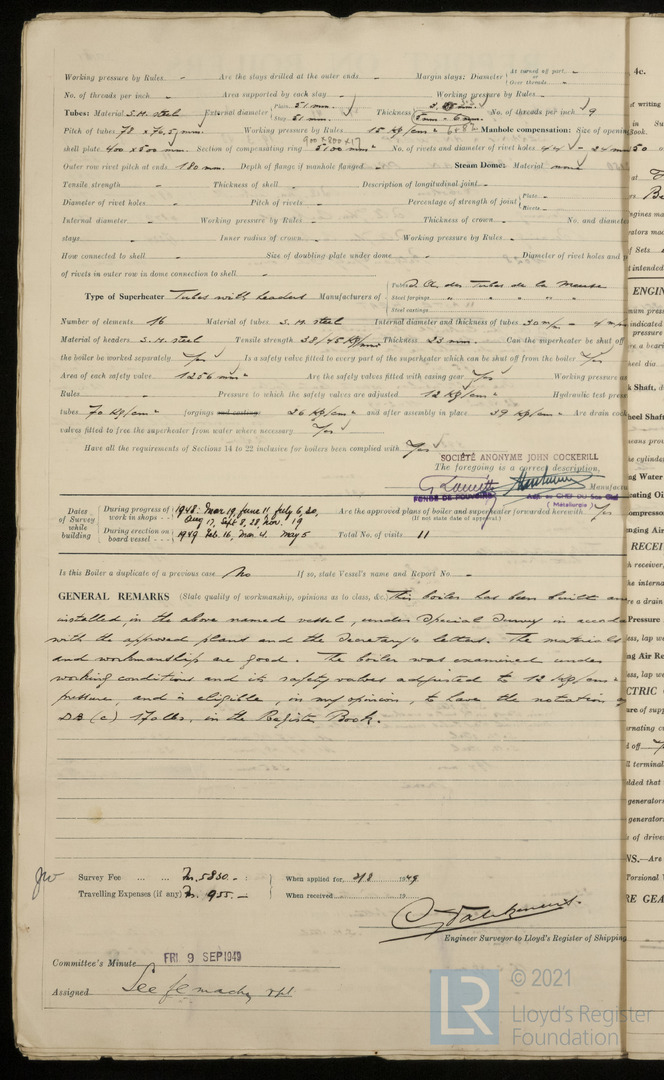 Working pressure by Rules - Are the stays drilled at the outer ends - Margin stays: Diameter { At turned off part, - or Over threads -
No. of threads per inch - Area supported by each stay - Working pressure by Rules -
Tubes: Material S.H. steel External diameter { Plain 51 mm. Stay 51 mm. Thickness { No. of threads per inch 9
Pitch of tubes 78 x 76.5 mm. Working pressure by Rules 15 Kg/cm² Manhole compensation: Size of opening
shell plate 400 x 500 mm. Section of compensating ring No. of rivets and diameter of rivet holes 44 - 24 mm
Outer row rivet pitch at ends 180 mm. Depth of flange if manhole flanged - Steam Dome: Material none
Tensile strength - Thickness of shell - Description of longitudinal joint -
Diameter of rivet holes - Pitch of rivets - Percentage of strength of joint { Plate - Rivets -
Internal diameter - Working pressure by Rules - Thickness of crown - No. and diameter
stays - Inner radius of crown - Working pressure by Rules -
How connected to shell - Size of doubling plate under dome - Diameter of rivet holes and
of rivets in outer row in dome connection to shell -
Type of Superheater Tubes with headers Manufacturers of { Tubes des Tubes de la Meuse Steel forgings " " " " Steel castings
Number of elements 16 Material of tubes S.H. steel Internal diameter and thickness of tubes 30 m/m - 4 m/m
Material of headers S.H. steel Tensile strength 38/45 Kg/mm² Thickness 23 mm. Can the superheater be shut off
the boiler be worked separately Yes Is a safety valve fitted to every part of the superheater which can be shut off from the boiler Yes
Area of each safety valve 1256 mm² Are the safety valves fitted with easing gear Yes Working pressure as
Rules - Pressure to which the safety valves are adjusted 12 Kg/cm² Hydraulic test pres
tubes 70 Kg/cm² forgings and casting 36 Kg/cm² and after assembly in place 39 Kg/cm² Are drain cock
valves fitted to free the superheater from water where necessary Yes
Have all the requirements of Sections 14 to 22 inclusive for boilers been complied with Yes
SOCIÉTÉ ANONYME JOHN COCKERILL
The foregoing is a correct description,
FONDÉ DE POUVOIRS Manufac
(Métallurgie)
Dates of Survey while building { During progress of work in shops - - 1948: Mar 19, June 11, July 6, 20, Aug 17, Sept 8, 28, Nov. 19 Are the approved plans of boiler and superheater forwarded herewith Yes
(If not state date of approval.)
During erection on board vessel - - - 1949 Feb. 16, Mar 4. May 5 Total No. of visits 11
Is this Boiler a duplicate of a previous case No If so, state Vessel's name and Report No. -
GENERAL REMARKS (State quality of workmanship, opinions as to class, &c. This boiler has been built an
installed in the above named vessel, under Special Survey in accord
with the approved plans and the Secretary's letters. The materials
and workmanship are good. The boiler was examined under
working conditions and its safety valves adjusted to 12 Kg/cm²
pressure, and is eligible, in my opinion, to have the notation of
DB (c) 170 lbs, in the Register Book.
Survey Fee ... ... Fr. 5830 - : When applied for, 31/8 1949
Travelling Expenses (if any) Fr. 955 - : When received, 19
Engineer Surveyor to Lloyd's Register of Shipping
Committee's Minute FRI 9 SEP 1949
Assigned See fe machy rpt
4c.
writing
ENGIN
Shaft,
heel Shaft
ng Water
ating Oil
ompressor
nging Air
RECEI
h receiver,
Pressure
ng Air Re
CTRIC
terminal
generators
generator
of drive
NS.—Are
Torsional
RE GEA
© 2021
LR
Lloyd's Register
Foundation